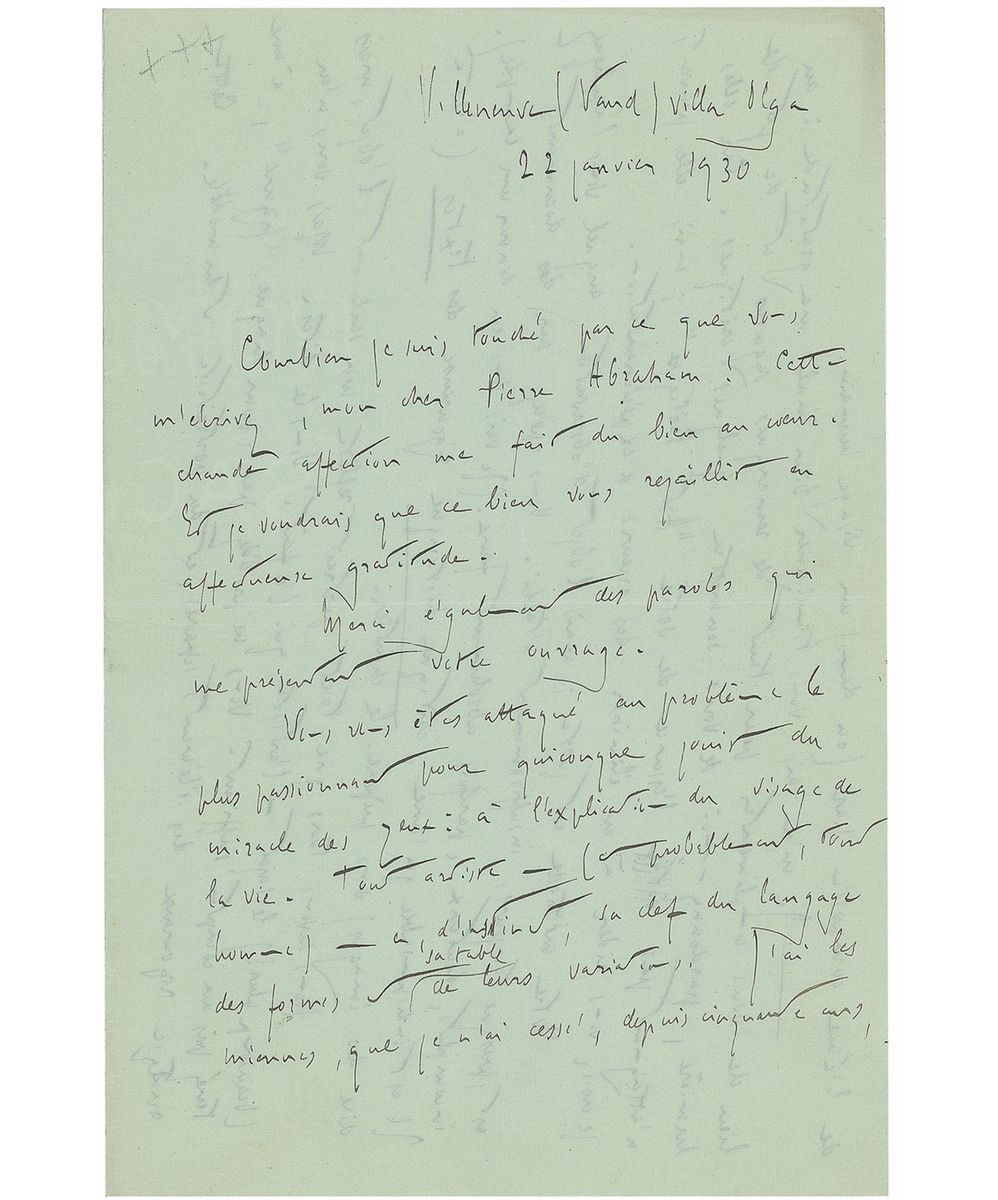 Villeneuve (Vaud) villa Olga
22 janvier 1930
Combien je suis touché par ce que vous
m'écrivez, mon cher Pierre Abraham ! Cette
chaude affection me fait du bien au cœur.
Et je voudrais que ce bien vous rejaillît en
affectueuse gratitude.
Merci également des paroles qui
me présentent votre ouvrage.
Vous vous êtes attaqué au problème le
plus passionnant pour quiconque jouit du
miracle des yeux : à l'explication du visage de
la vie. Tout artiste — (et probablement, tout
homme) — a, d'instinct, sa clef du langage
des formes et sa table de leurs variations. J'ai les
miennes, que je n'ai cessé, depuis cinquante ans,